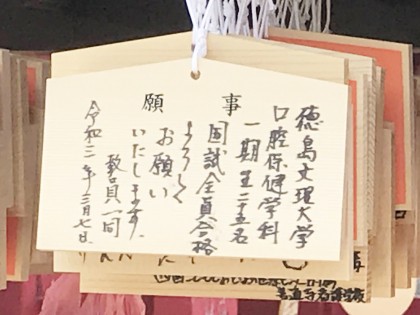 願事
徳島文理大学
口腔保健学科
一期生二十五名
国試全員合格
よろしく
お願い
いたします。
教員一同
令和三年三月七日
善通寺看護学校